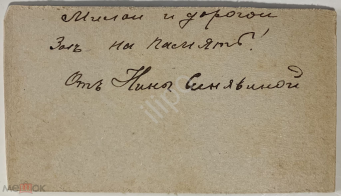 Милой и дорогой
Зое на память!
Отъ Нины Синявиной